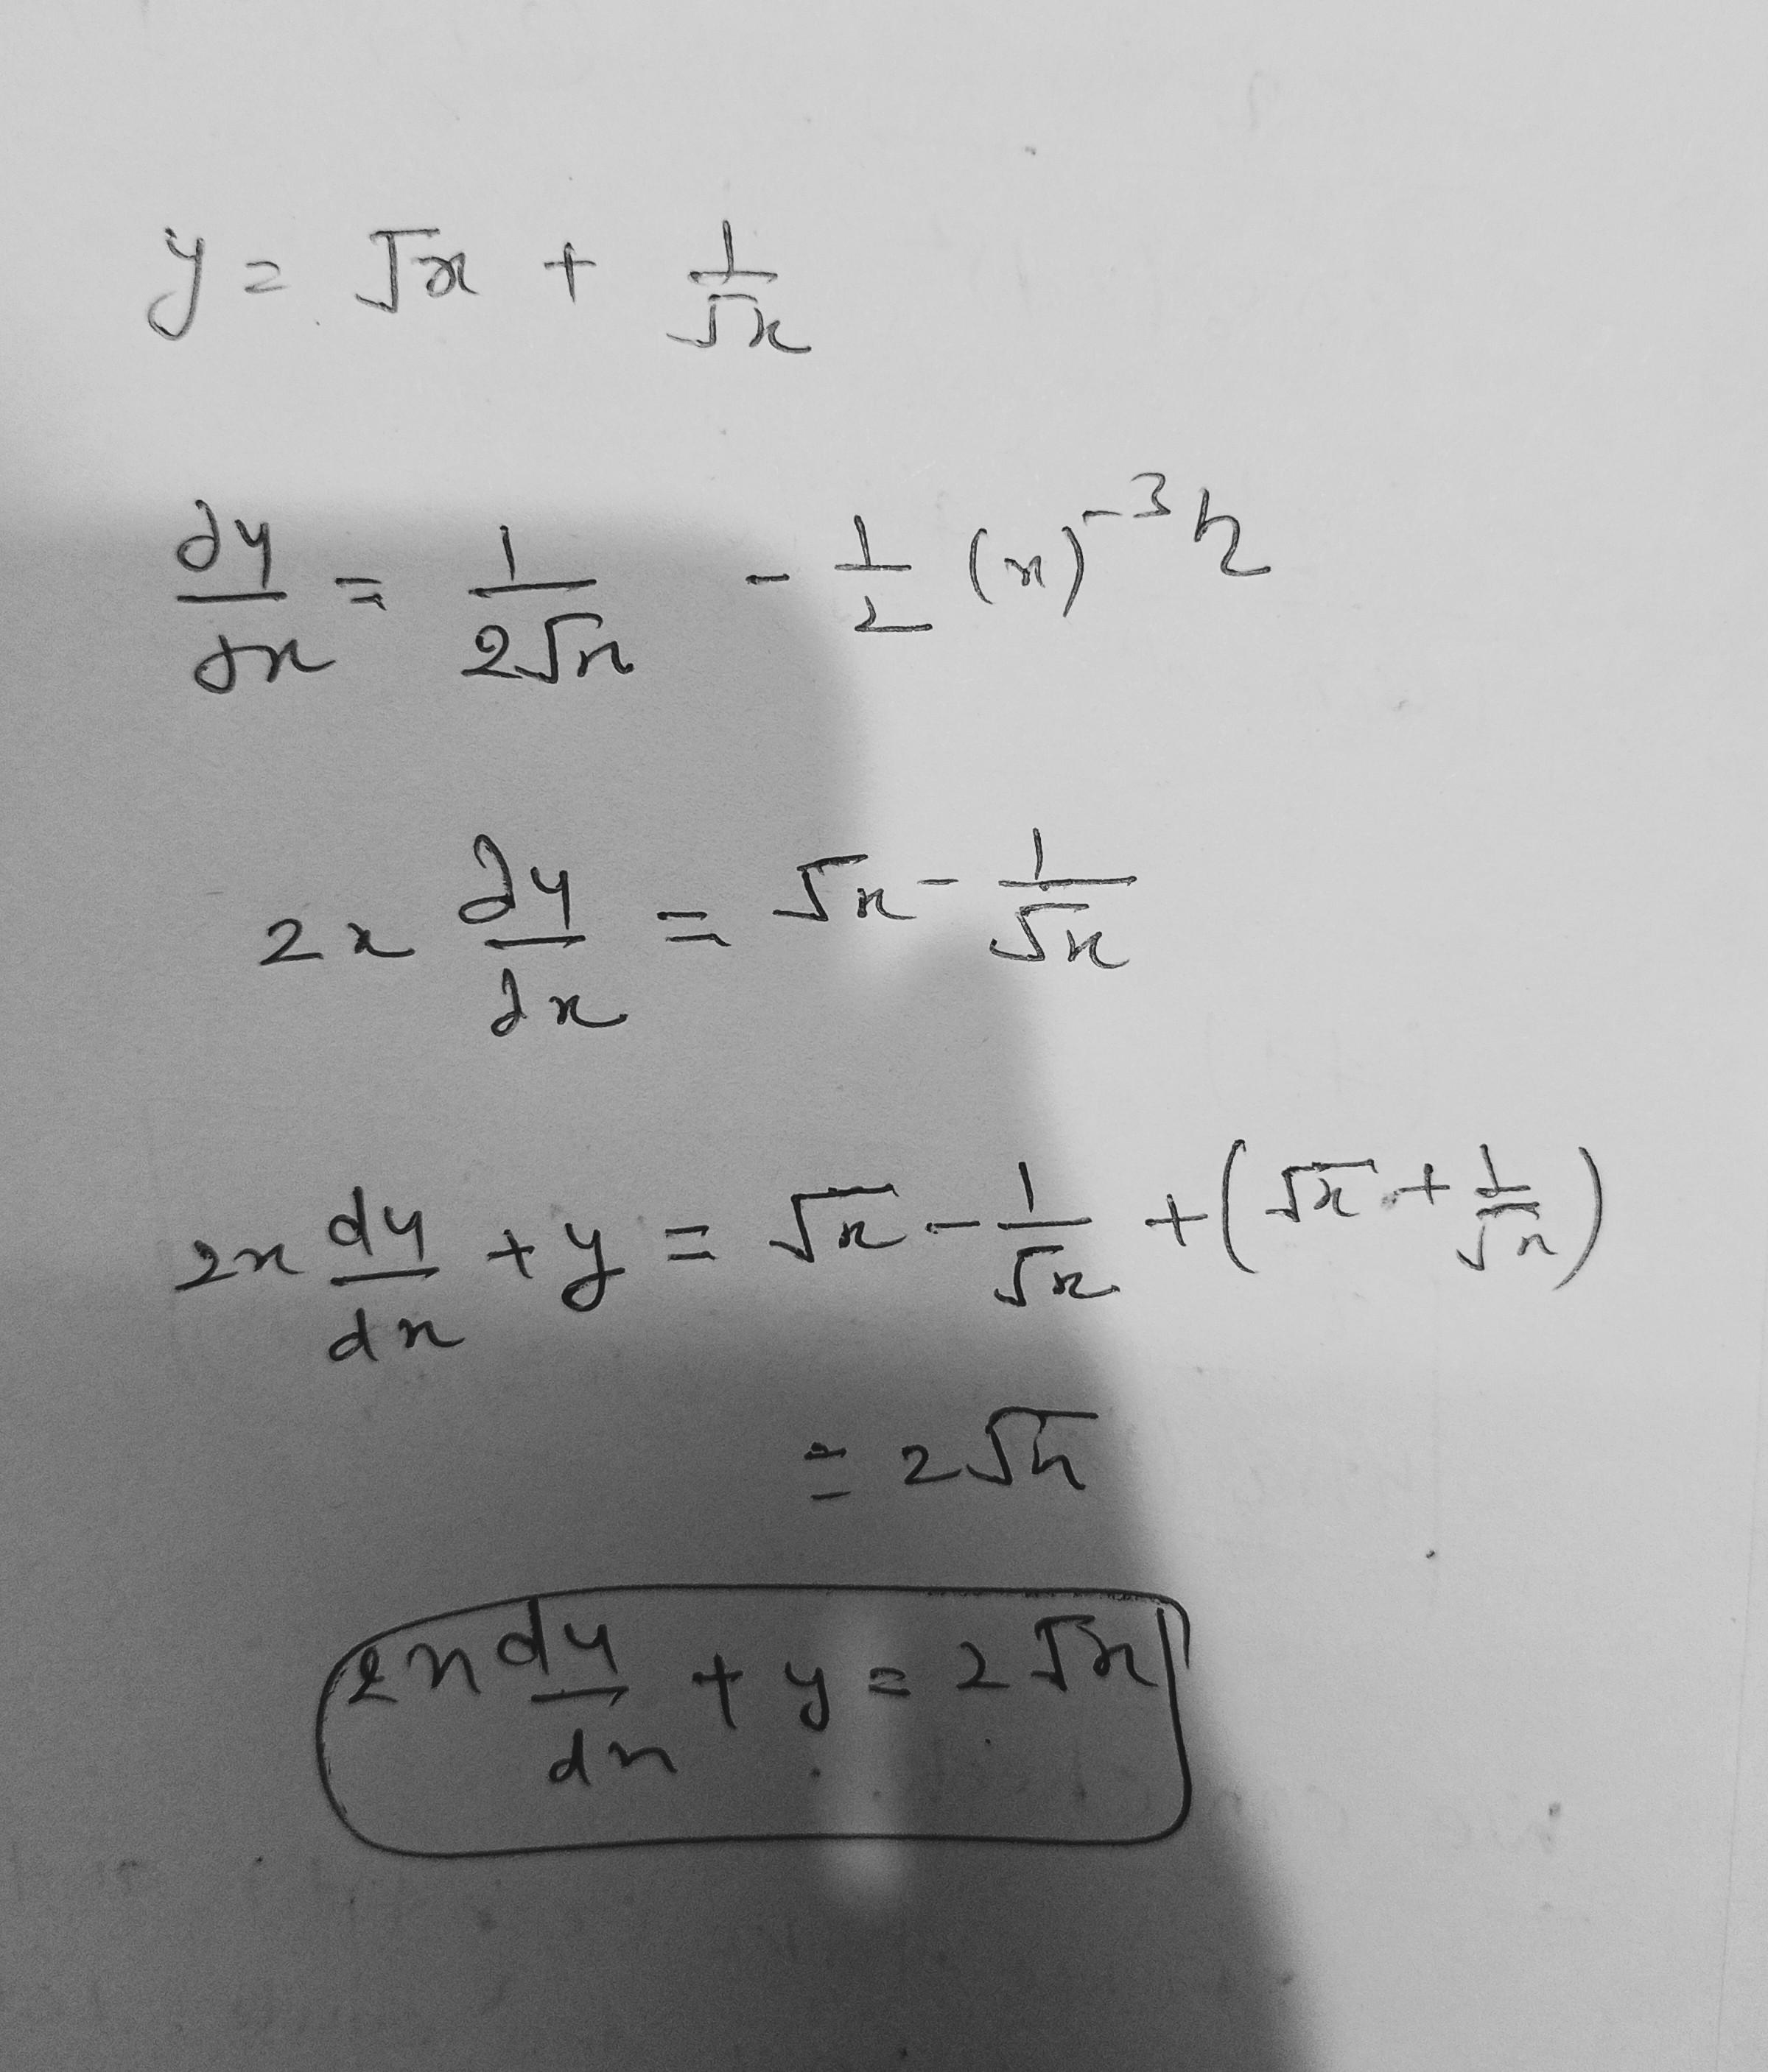 y = √x + 1/√x
dy/dx = 1/2√x - 1/2 (x)^-3/2
2x dy/dx = √x - 1/√x
2x dy/dx + y = √x - 1/√x + (√x + 1/√x)
= 2√x
2x dy/dx + y = 2√x